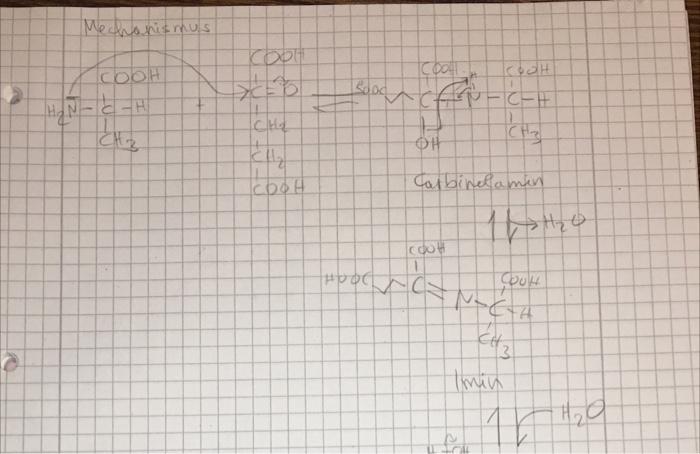 Mechanismus
COOH
H₂N-C-H
CH₃
+
COOH
C=O
CH₂
CH₂
COOH
COOH COOH
C-N-C-H
OH CH₃
Carbinolamin
H₂O
COOH
HOOC C=N-C-H
COOH
CH₃
Imin
H₂O